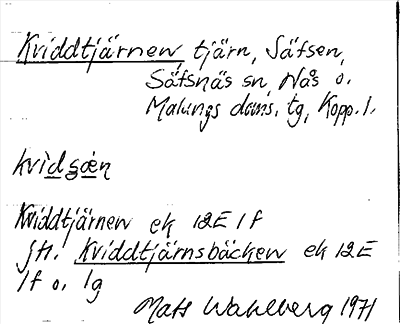 Kviddtjärnen tjärn, Säfsen,
Säfsnäs sn, Nås o.
Malungs doms. tg, Kopp. l.
kvidʂæ̀ṇ
Kviddtjärnen ek 12E 1f
jfr. Kviddtjärnsbäcken ek 12E
1f o. 1g
Mats Wahlberg 1971